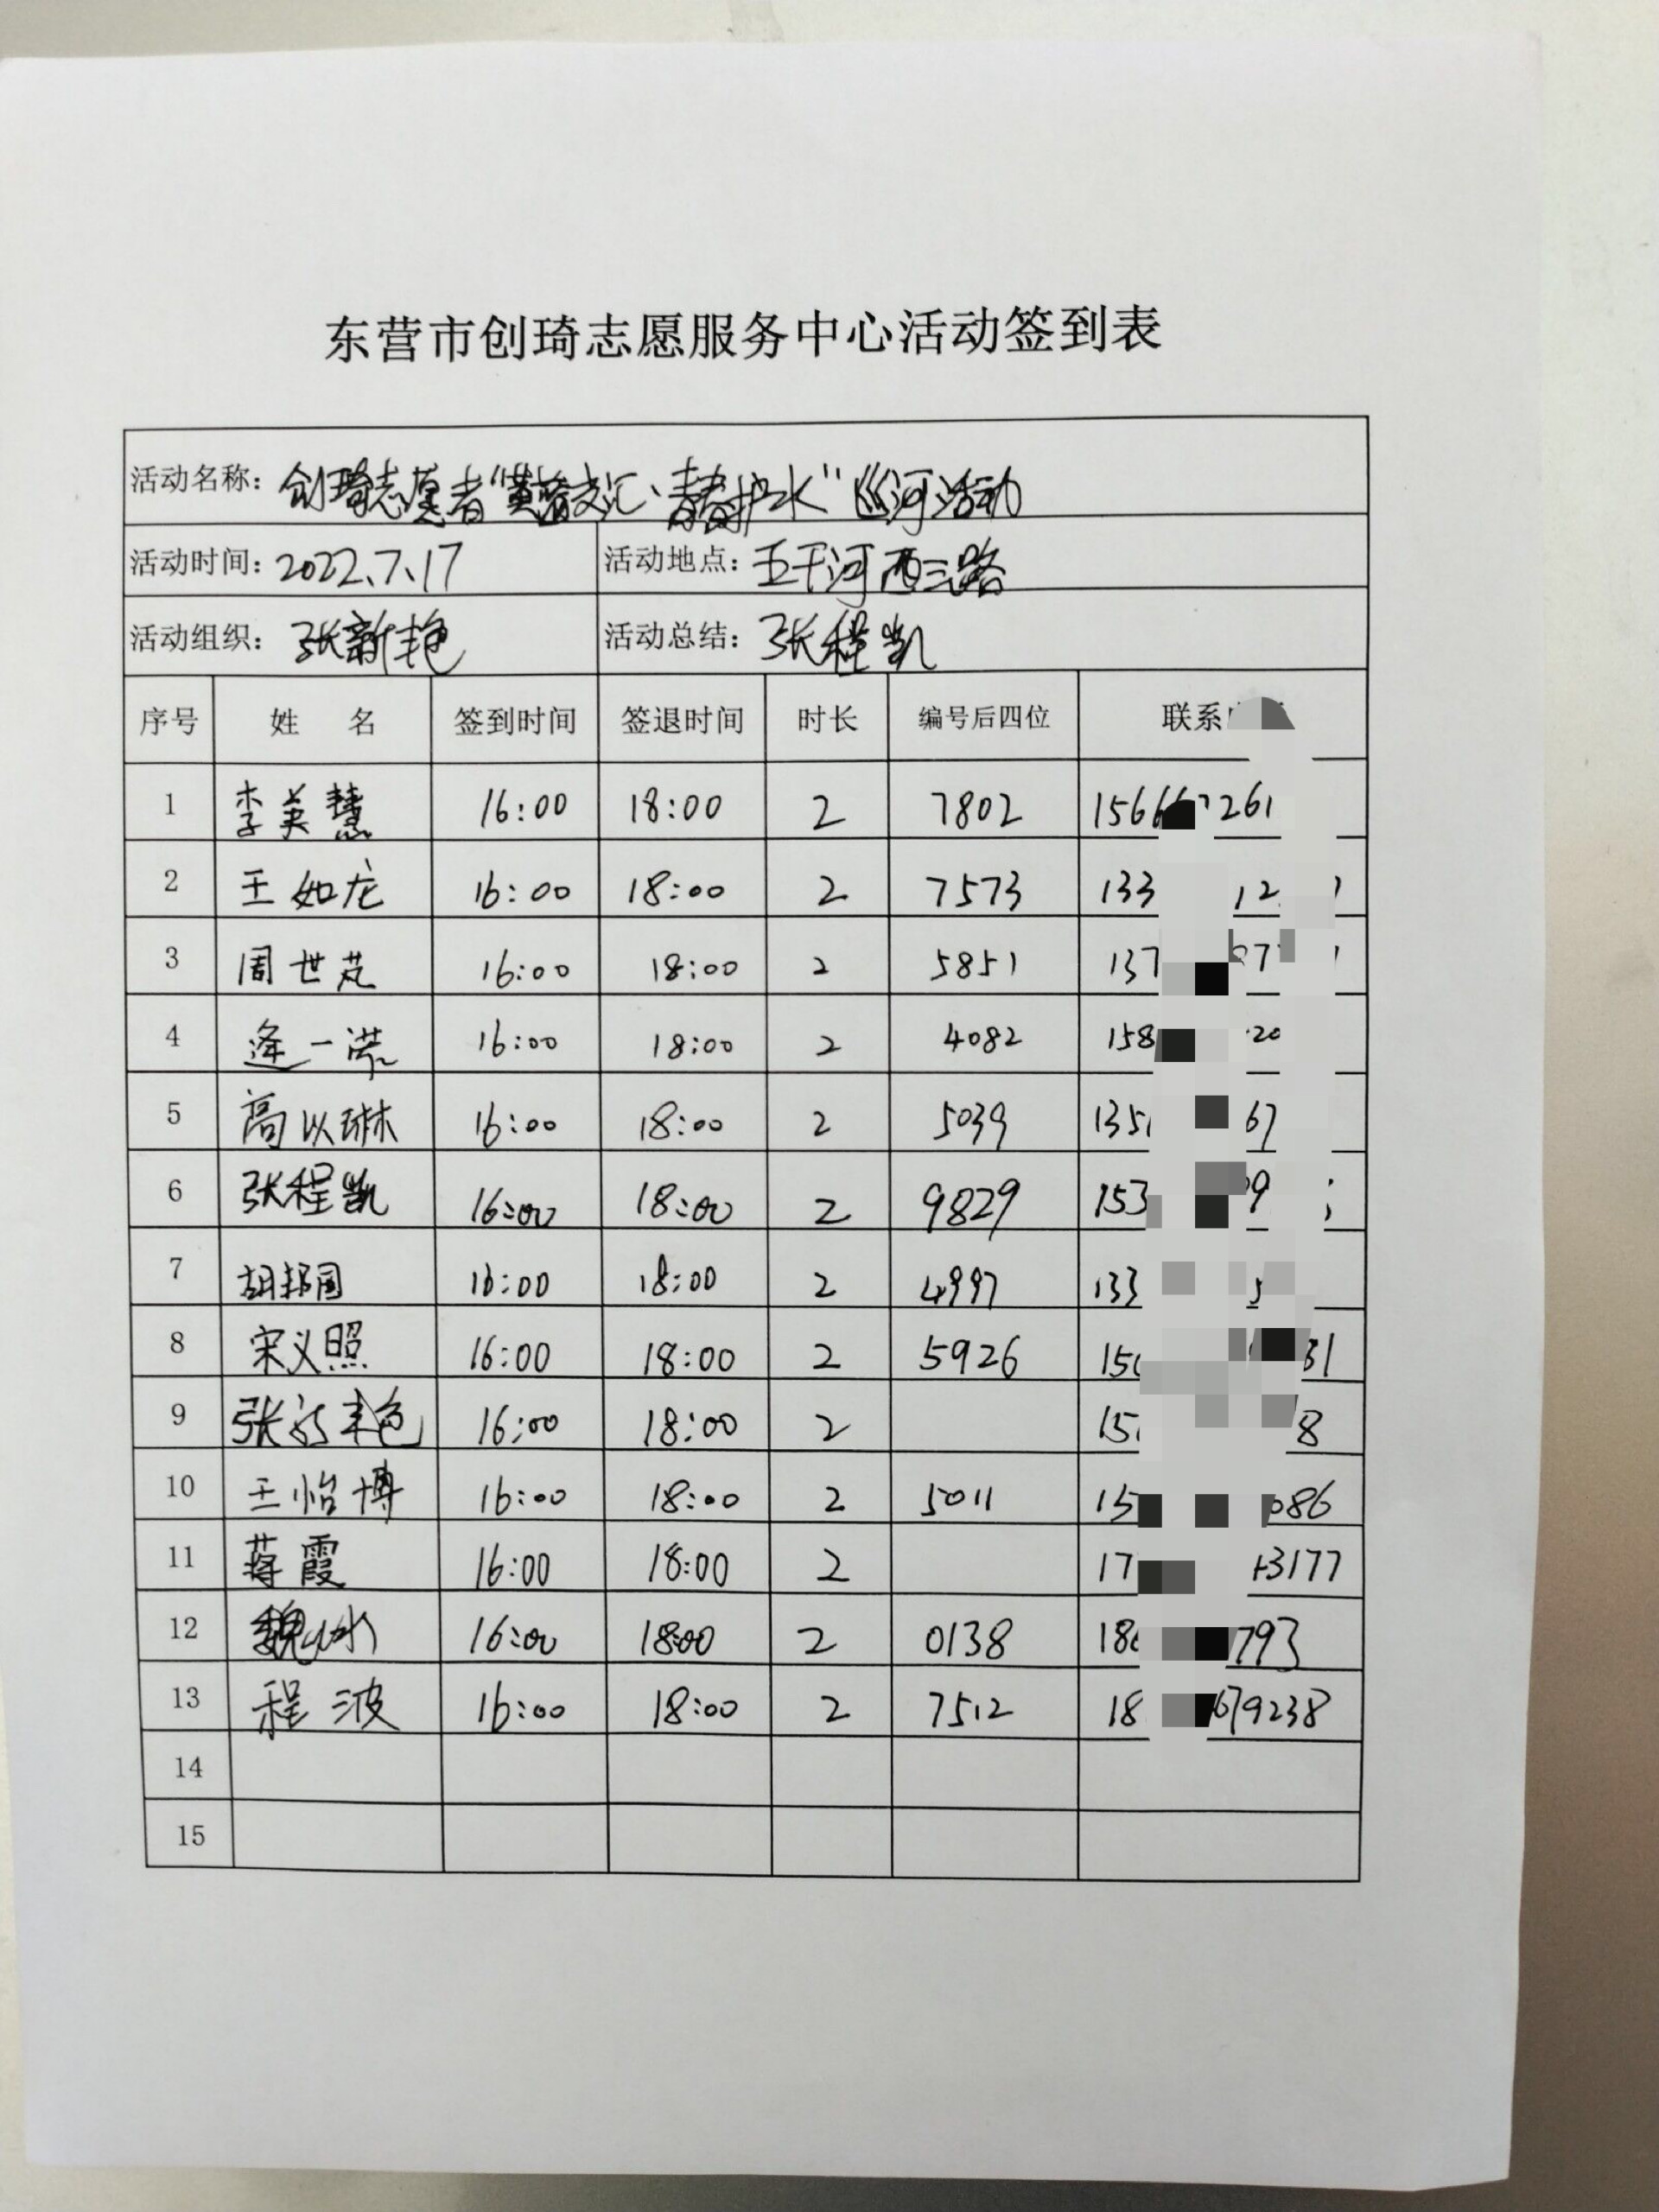 东营市创琦志愿服务中心活动签到表
活动名称: 创琦志愿者“黄蓝交汇、青春护水”巡河活动
活动时间: 2022、7、17 活动地点: 五干河西三路
活动组织: 张新艳 活动总结: 张程凯
序号 姓 名 签到时间 签退时间 时长 编号后四位 联系
1 李美慧 16:00 18:00 2 7802 156 261
2 王如龙 16:00 18:00 2 7573 133 12
3 周世芃 16:00 18:00 2 5851 137 7
4 逄一 16:00 18:00 2 4082 158 20
5 高以琳 16:00 18:00 2 5039 135 67
6 张程凯 16:00 18:00 2 9829 153 9
7 胡邦国 16:00 18:00 2 4997 133 5
8 宋义照 16:00 18:00 2 5926 15 31
9 张新艳 16:00 18:00 2 15 8
10 王怡博 16:00 18:00 2 5011 15 086
11 蒋霞 16:00 18:00 2 17 3177
12 魏冰 16:00 18:00 2 0138 18 793
13 程波 16:00 18:00 2 7512 18 679238
14
15